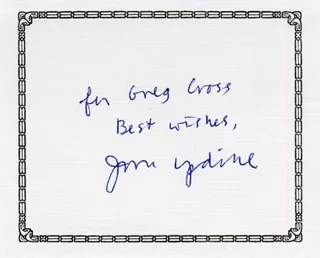 for Greg Cross
Best wishes,
John Updike